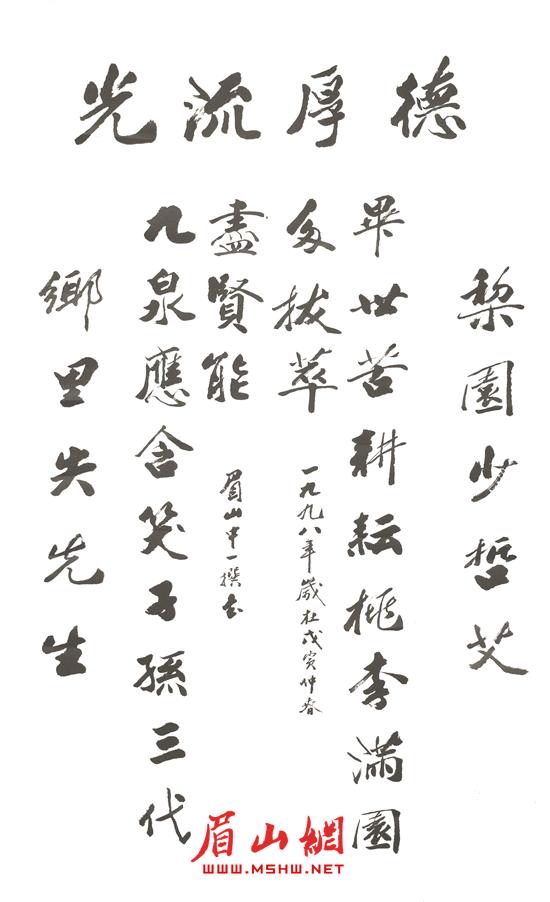 德厚流光
梨園少哲艾
畢世苦耕耘桃李滿園
多拔萃
一九九八年歲在戊寅仲春
盡賢能
眉山中一撰書
九泉應含笑子孫三代
鄉里失先生
眉山網
WWW.MSHW.NET